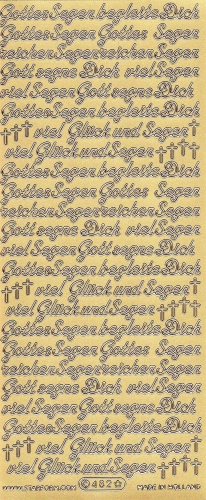 Gottes Segen begleite Dich
Gottes Segen Gottes Segen
reichen Segen reichen Segen
Gott segne Dich viel Segen
viel Segen Gott segne Dich
Gottes Segen begleite Dich
viel Glück und Segen
viel Glück und Segen
Gottes Segen begleite Dich
Gottes Segen Gottes Segen
reichen Segen reichen Segen
viel Segen Gott segne Dich
Gott segne Dich viel Segen
Gottes Segen begleite Dich
viel Glück und Segen
viel Glück und Segen
Gottes Segen begleite Dich
Gottes Segen Gottes Segen
reichen Segen reichen Segen
Gott segne Dich viel Segen
viel Segen Gott segne Dich
viel Glück und Segen
viel Glück und Segen
www.starform.com © 482 MADE IN HOLLAND